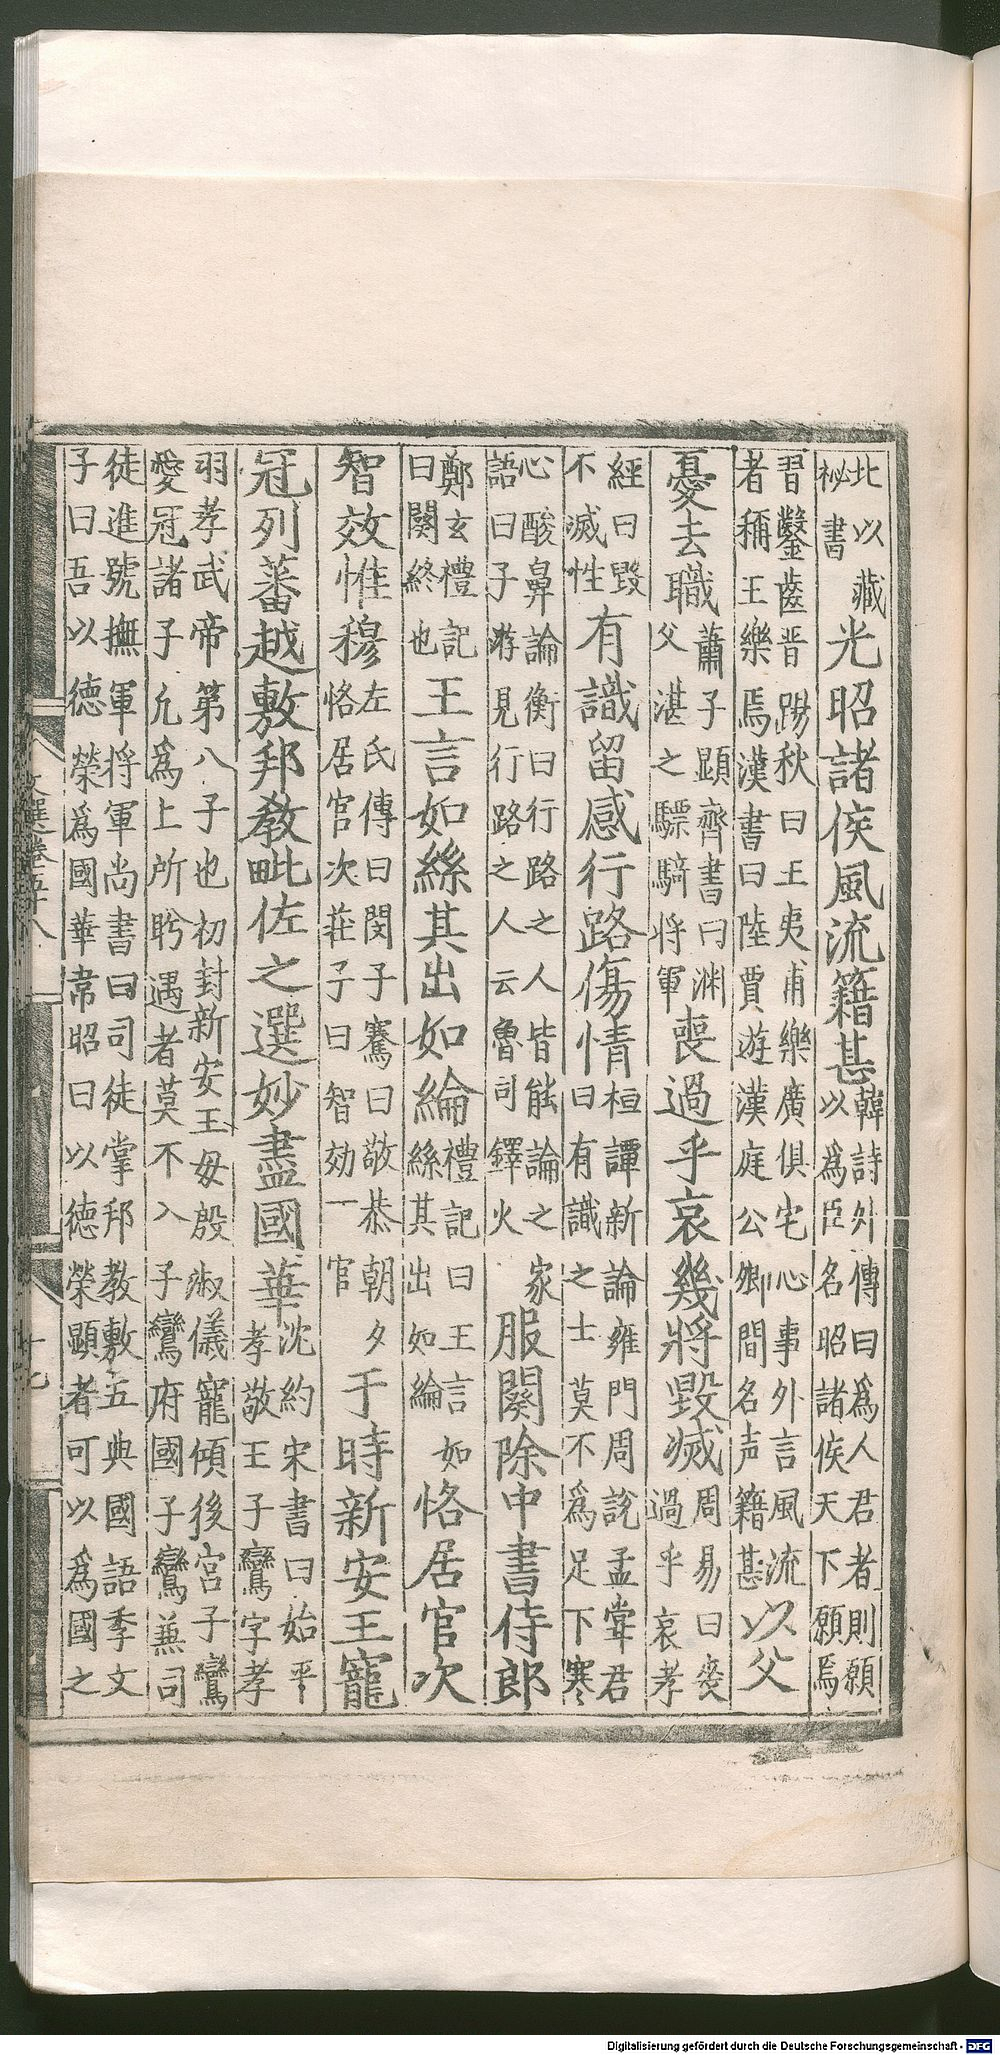 北以藏祕書光昭諸侯風流籍甚韓詩外傳曰為人君者則願以為臣名昭諸侯天下願焉
習鑿齒晉陽秋曰王夷甫樂廣俱宅心事外言風流者稱王樂焉漢書曰陸賈游漢庭公卿間名声籍甚以父
憂去職蕭子顯齊書曰渊父湛之驃騎将軍喪過乎哀幾將毀滅周易曰喪過乎哀孝
經曰毀不滅性有識留感行路傷情桓譚新論雍門周說孟甞君曰有識之士莫不為足下寒
心酸鼻論衡曰行路之人皆能論之家語曰子游見行路之人云魯司鐸火服闋除中書侍郎
鄭玄禮記曰闋終也王言如絲其出如綸禮記曰王言如絲其出如綸恪居官次
智效惟穆左氏傳曰閔子騫曰敬恭朝夕恪居官次莊子曰智効一官于時新安王寵
冠列蕃越敷邦教毗佐之選妙盡國華沈約宋書曰始平孝敬王子鸞字孝
羽孝武帝第八子也初封新安王毋殷淑儀寵傾後宮子鸞愛冠諸子凡為上所眄遇者莫不入子鸞府國子鸞兼司
徒進號撫軍将軍尚書曰司徒掌邦教敷五典國語季文子曰吾以德榮為國華韋昭曰以德榮顯者可以為國之
文選卷五十八
十七
Digitalisierung gefördert durch die Deutsche Forschungsgemeinschaft - DFG